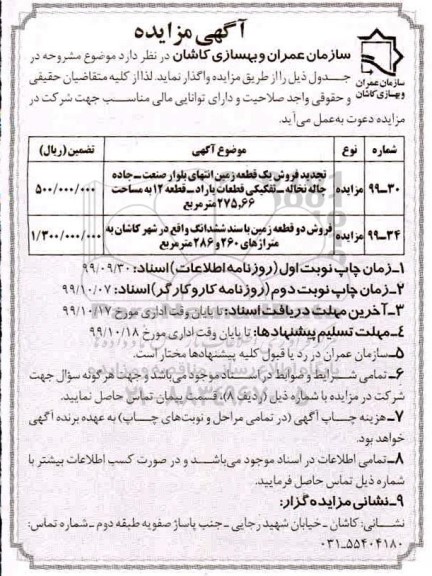 آگهی مزایده
سازمان عمران و بهسازی کاشان در نظر دارد موضوع مشروحه در
جدول ذیل را از طریق مزایده واگذار نماید. لذا از کلیه متقاضیان حقیقی
و حقوقی واجد صلاحیت و دارای توانایی مالی مناسب جهت شرکت در
مزایده دعوت به‌عمل می‌آید.
سازمان عمران
و بهسازی کاشان
شماره نوع موضوع آگهی تضمین (ریال)
۳۰ــ۹۹ مزایده تجدید فروش یک قطعه زمین انتهای بلوار صنعت ــ جاده
چاله نخاله ــ تفکیکی قطعات پاراد ــ قطعه ۱۲ به مساحت
۲۷۵,۶۶ متر مربع ۵۰۰/۰۰۰/۰۰۰
۳۴ــ۹۹ مزایده فروش دو قطعه زمین با سند ششدانگ واقع در شهر کاشان به
متراژهای ۲۶۰ و ۲۸۶ متر مربع ۱/۳۰۰/۰۰۰/۰۰۰
۱ــ زمان چاپ نوبت اول (روزنامه اطلاعات) اسناد: ۹۹/۰۹/۳۰
۲ــ زمان چاپ نوبت دوم (روزنامه کار و کارگر) اسناد: ۹۹/۱۰/۰۷
۳ــ آخرین مهلت دریافت اسناد: تا پایان وقت اداری مورخ ۹۹/۱۰/۱۷
۴ــ مهلت تسلیم پیشنهادها: تا پایان وقت اداری مورخ ۹۹/۱۰/۱۸
۵ــ سازمان عمران در رد یا قبول کلیه پیشنهادها مختار است.
۶ــ تمامی شرایط و ضوابط در اسناد موجود می‌باشد و جهت هر گونه سؤال جهت
شرکت در مزایده با شماره ذیل (ردیف ۸)، قسمت پیمان تماس حاصل نمایید.
۷ــ هزینه چاپ آگهی (در تمامی مراحل و نوبت‌های چاپ) به عهده برنده آگهی
خواهد بود.
۸ــ تمامی اطلاعات در اسناد موجود می‌باشد و در صورت کسب اطلاعات بیشتر با
شماره ذیل تماس حاصل فرمایید.
۹ــ نشانی مزایده گزار:
نشانی: کاشان ــ خیابان شهید رجایی ــ جنب پاساژ صفویه طبقه دوم ــ شماره تماس:
۰۳۱ــ۵۵۴۰۴۱۸۰